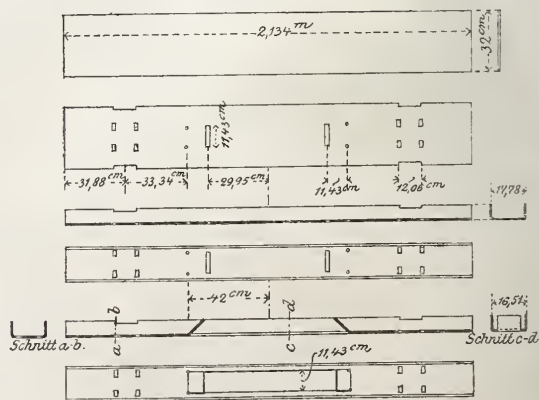 2,134 m
32 cm
11,43 cm
31,88 cm
33,34 cm
29,95 cm
11,43 cm
12,06 cm
17,78
42 cm
b
d
16,51
a
c
Schnitt a-b.
Schnitt c-d
11,43 cm